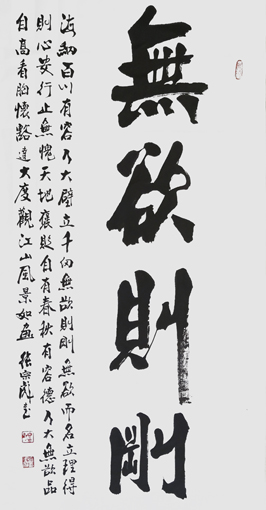 無欲則剛
海納百川有容乃大壁立千仞無欲則剛無欲而名立理得
則心安行止無愧天地褒貶自有春秋有容德乃大無欲品
自高看胸懷豁達大度觀江山風景如畫